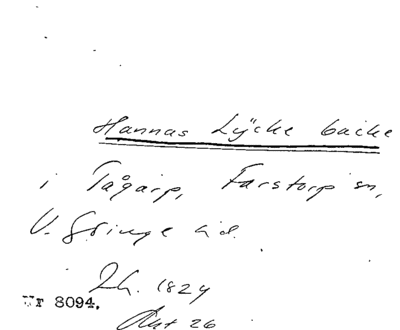 Hannas Lÿcke backe
i Tågarp, Farstorp sn,
V. Göinge hd.
Lh. 1824
Nr 8094.
Akt 26